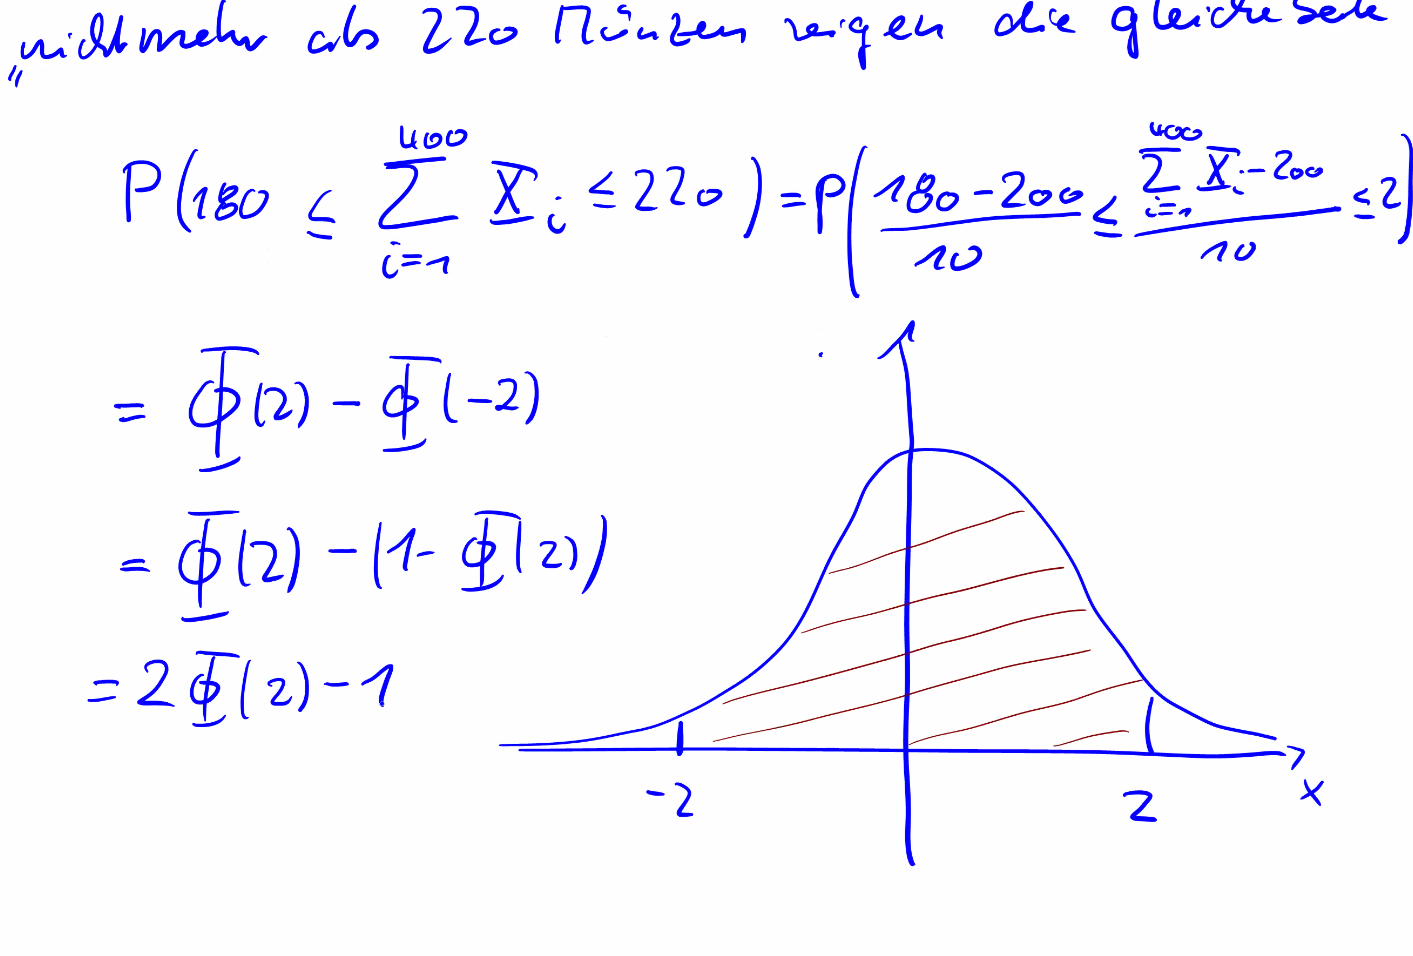 „nicht mehr als 220 Münzen zeigen die gleiche Seite
P(180 ≤ ∑_{i=1}^{400} X_i ≤ 220) = P((180-200)/10 ≤ (∑_{i=1}^{400} X_i - 200)/10 ≤ 2)
= Φ(2) - Φ(-2)
= Φ(2) - (1 - Φ(2))
= 2Φ(2) - 1
-2 2 x